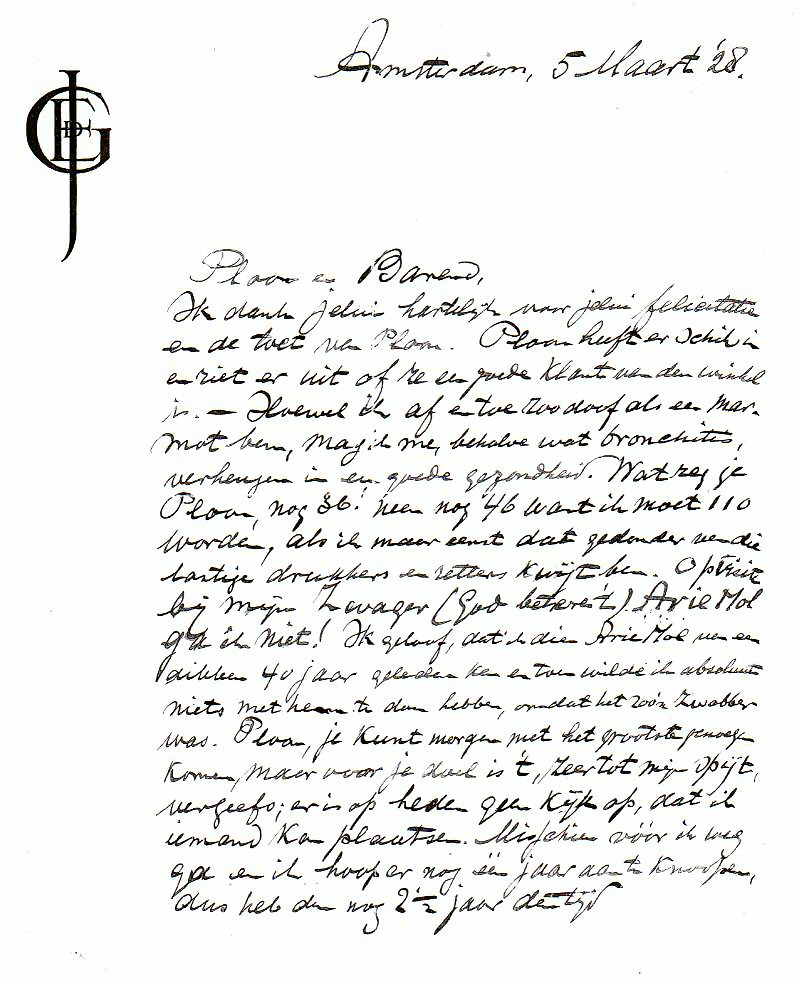 Amsterdam, 5 Maart '28.
JGED
Ploon en Barend,
Ik dank jelui hartelijk voor jelui felicitatie
en de toet van Ploon. Ploon heeft er schik in
en ziet er uit of ze een goede klant van den winkel
is. — Hoewel ik af en toe zoo doof als een mar-
mot ben, mag ik me, behalve wat bronchitis,
verheugen in een goede gezondheid. Wat zeg je
Ploon, nog 36! neen nog 46 want ik moet 110
worden, als ik maar eenst dat gedonder van die
lastige drukkers en zetters kwijt ben. Op visit
bij mijn Zwager (God betere 't) Arie Mol
ga ik niet! Ik geloof, dat ik dien Arie Mol van een
dikken 40 jaar geleden ken en toen wilde ik absoluut
niets met hem te doen hebben, omdat het zoo'n zwabber
was. Ploon, je kunt morgen met het grootste genoegen
komen, maar voor je doel is 't, zeer tot mijn spijt,
vergeefs; er is op heden geen kijk op, dat ik
iemand kan plaatsen. Misschien vóór ik weg
ga en ik hoop er nog één jaar aan te knoopen,
dus heb den nog 2½ jaar den tijd